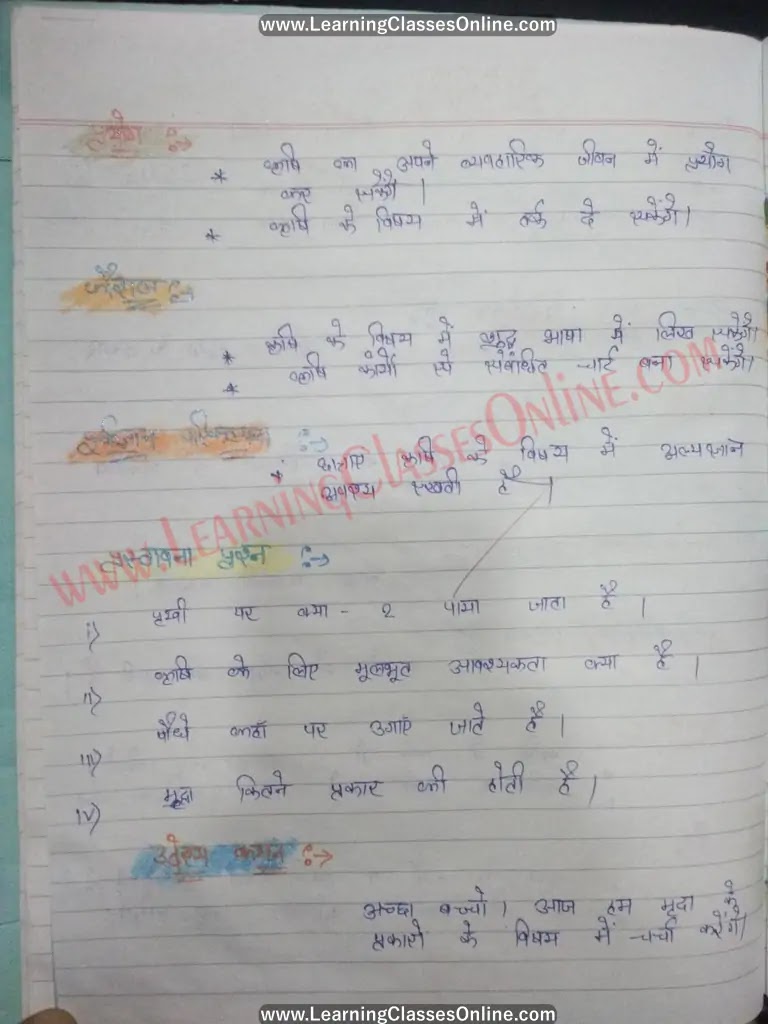 www.LearningClassesOnline.com
प्रयोग :→
* कृषि का अपने व्यवहारिक जीवन में प्रयोग
कर सकेंगे।
* कृषि के विषय में तर्क दे सकेंगे।
कौशल :→
* कृषि के विषय में शुद्ध भाषा में लिख सकेंगे।
* कृषि कार्यो से संबंधित चार्ट बना सकेंगे।
पूर्वज्ञान परिकल्पना :→
* छात्राएं कृषि के विषय में अल्पज्ञान
अवश्य रखती है।
www.LearningClassesOnline.com
प्रस्तावना प्रश्न :→
i) पृथ्वी पर क्या-2 पाया जाता है।
ii) कृषि के लिए मूलभूत आवश्यकता क्या है।
iii) पौधे कहाँ पर उगाएं जाते है।
iv) मृदा कितने प्रकार की होती है।
उद्देश्य कथन :→
अच्छा बच्चो। आज हम मृदा के
प्रकारो के विषय में चर्चा करेंगे।
www.LearningClassesOnline.com